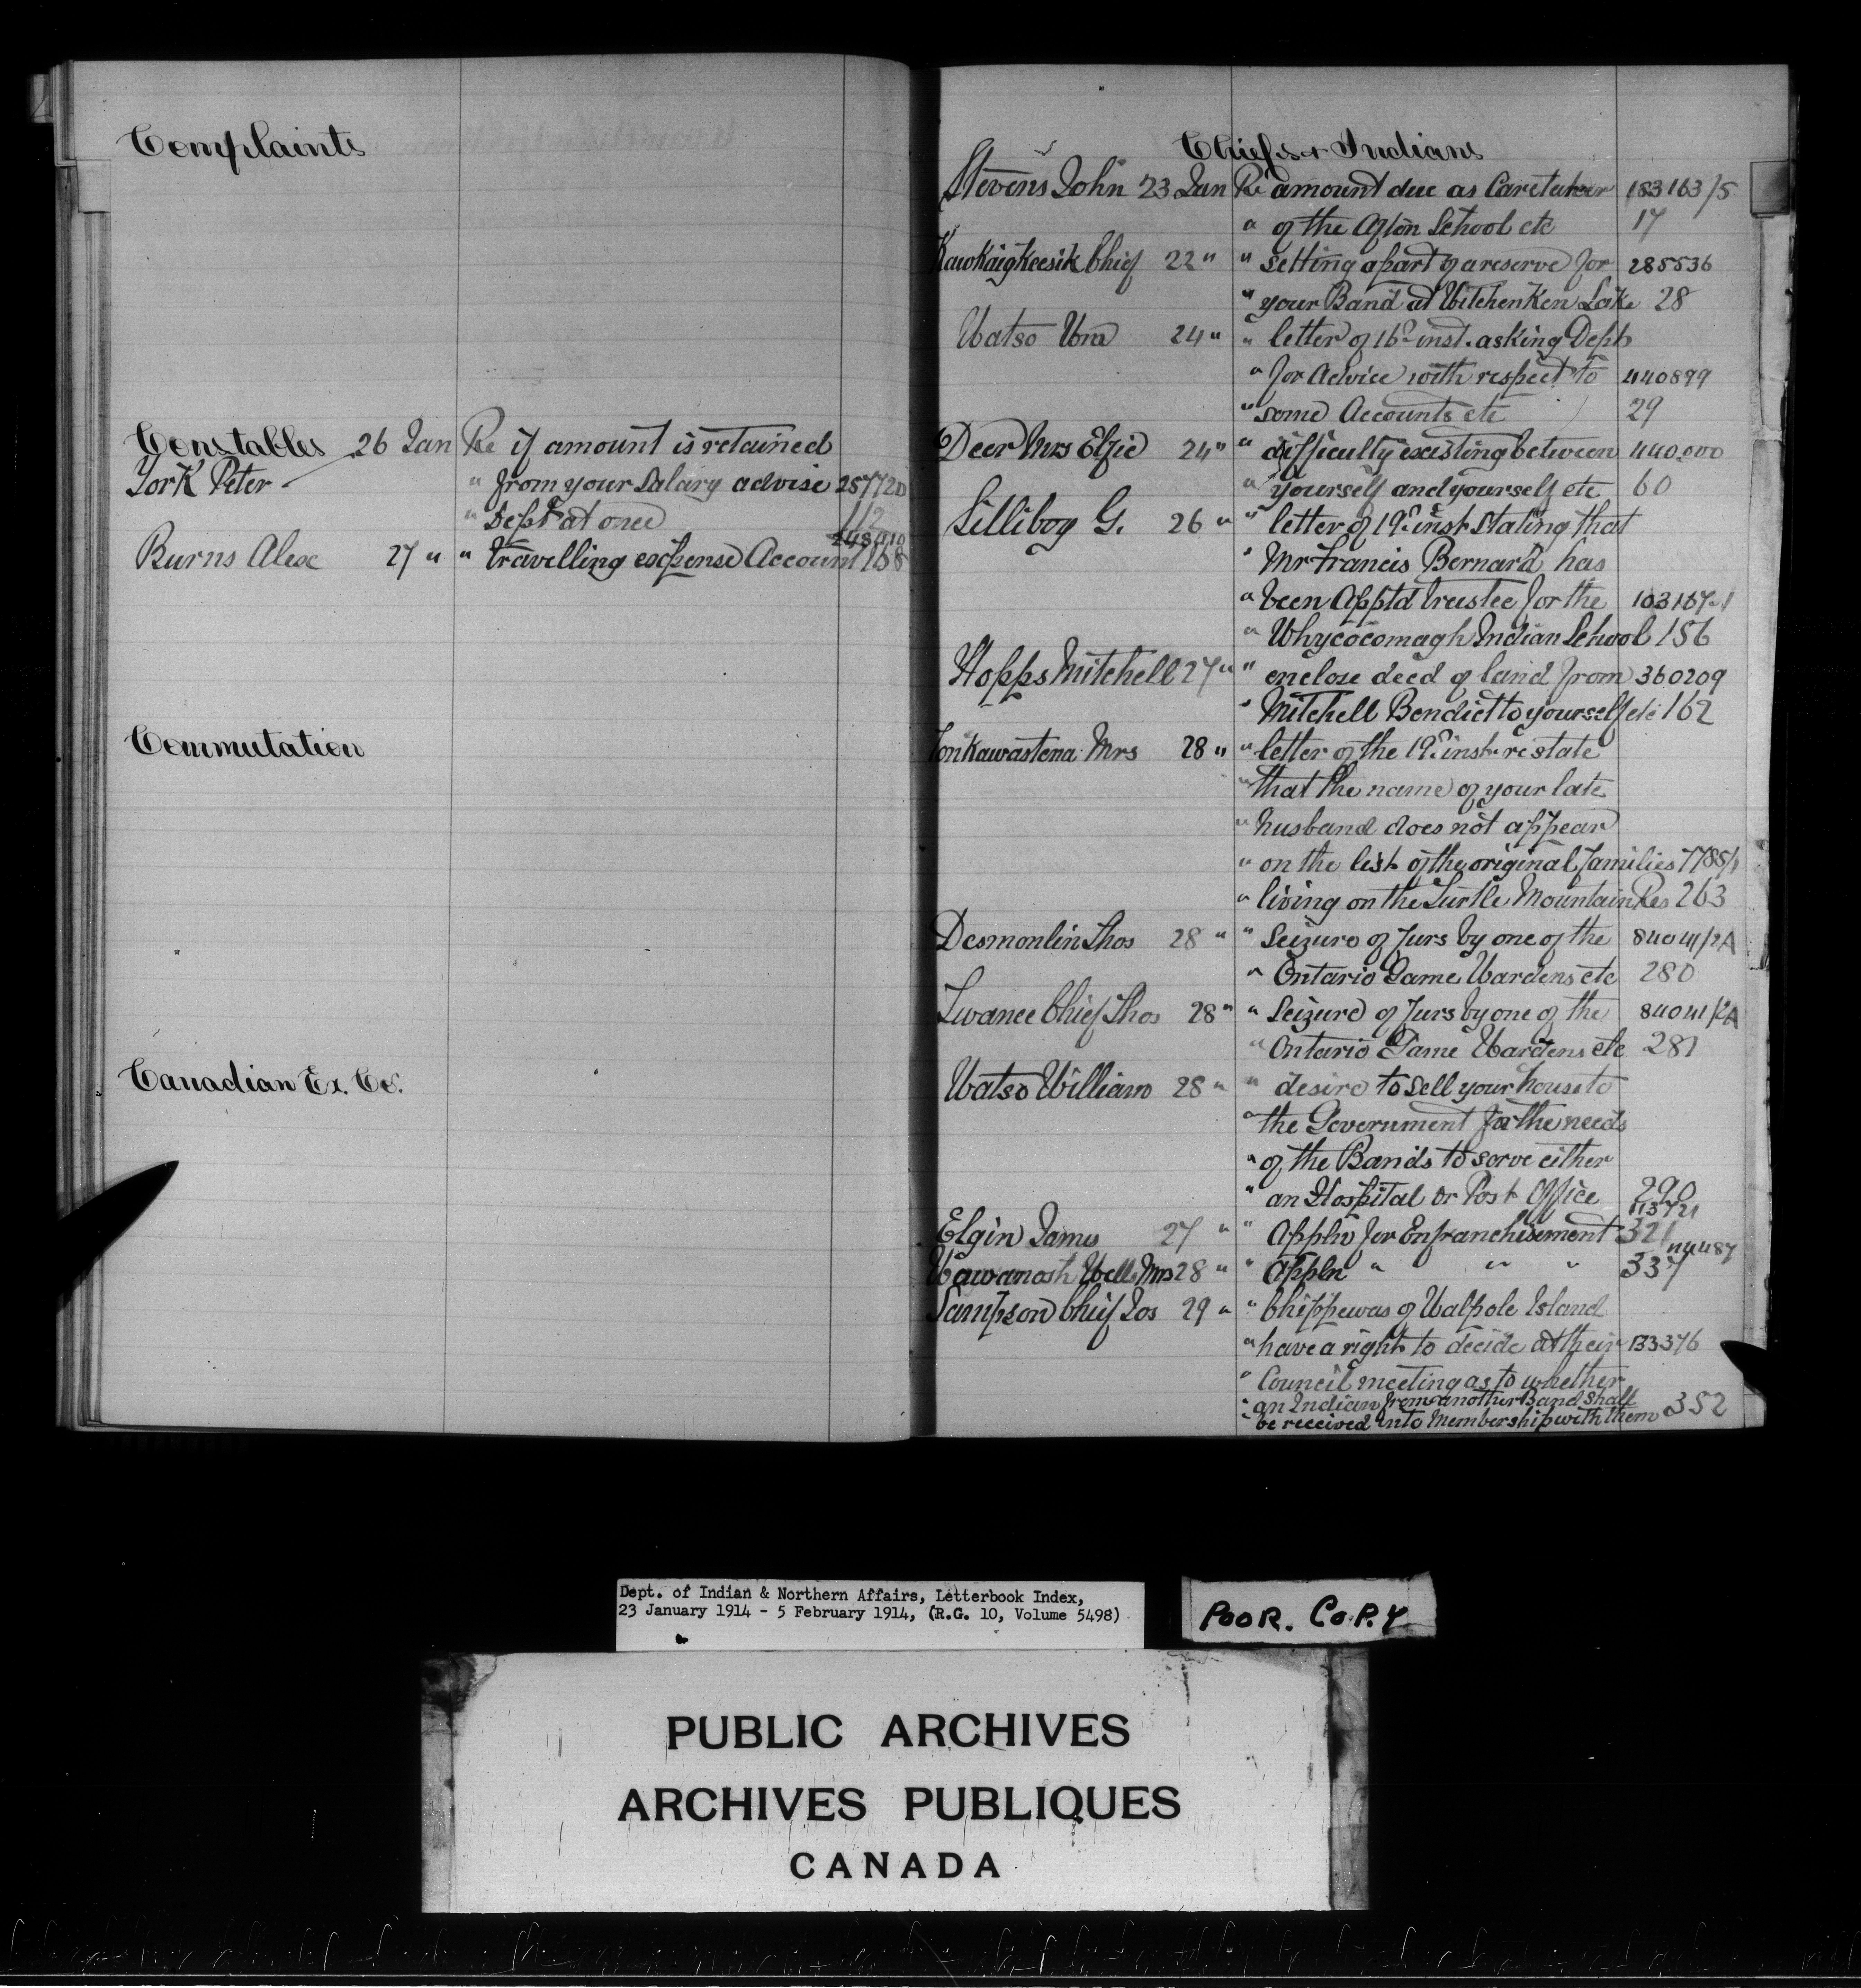 Complaints
Constables 26 Jan Re if amount is retained
York Peter " from your Salary advise 257720
" Dept at once 112
Burns Alex 27 " " travelling expense Account 168
Commutation
Canadian Ex. Co.
Chiefs & Indians
Stevens John 23 Jan Re amount due as Caretaker 183163/5
" of the Afton School etc 17
Kawkaigkeesik Chief 22 " " setting apart of a reserve for 285536
" your Band at Witchenken Lake 28
Watso Wm 24 " " letter of 16th inst. asking Dept
" for advice with respect to 440899
" some Accounts etc 29
Deer Mrs Elzie 24 " " difficulty existing between 440,000
" yourself and yourself etc 60
Lilliboy G. 26 " " letter of 19th inst stating that
" Mr Francis Bernard has
" been Apptd trustee for the
" Whycocomagh Indian School 156
Hopps Mitchell 27 " " enclose deed of land from 360209
" Mitchell Bendict to yourself etc 162
Mrs 28 " " letter of the 19th inst. re state
" that the name of your late
" husband does not appear
" on the list of the original families
" living on the Turtle Mountain Res 263
Desmonlin Thos 28 " " Seizure of furs by one of the 84041/2A
" Ontario Game Wardens etc 280
Twance Chief Thos 28 " " Seizure of furs by one of the 84041/2A
" Ontario Game Wardens etc 281
Watso William 28 " " desire to sell your house to
" the Government for the needs
" of the Bands to serve either
" an Hospital or Post Office 290
113721
Elgin James 27 " " Appln for Enfranchisement 321
Wawanosh Mrs 28 " " Appln " " " 337 114487
Sampson Chief Jos 29 " " Chippewas of Walpole Island
" have a right to decide at their 133376
" Council meeting as to whether
" an Indian from another Band shall
" be received into Membership with them 352
Dept. of Indian & Northern Affairs, Letterbook Index,
23 January 1914 - 5 February 1914, (R.G. 10, Volume 5498)
POOR. COPY
PUBLIC ARCHIVES
ARCHIVES PUBLIQUES
CANADA